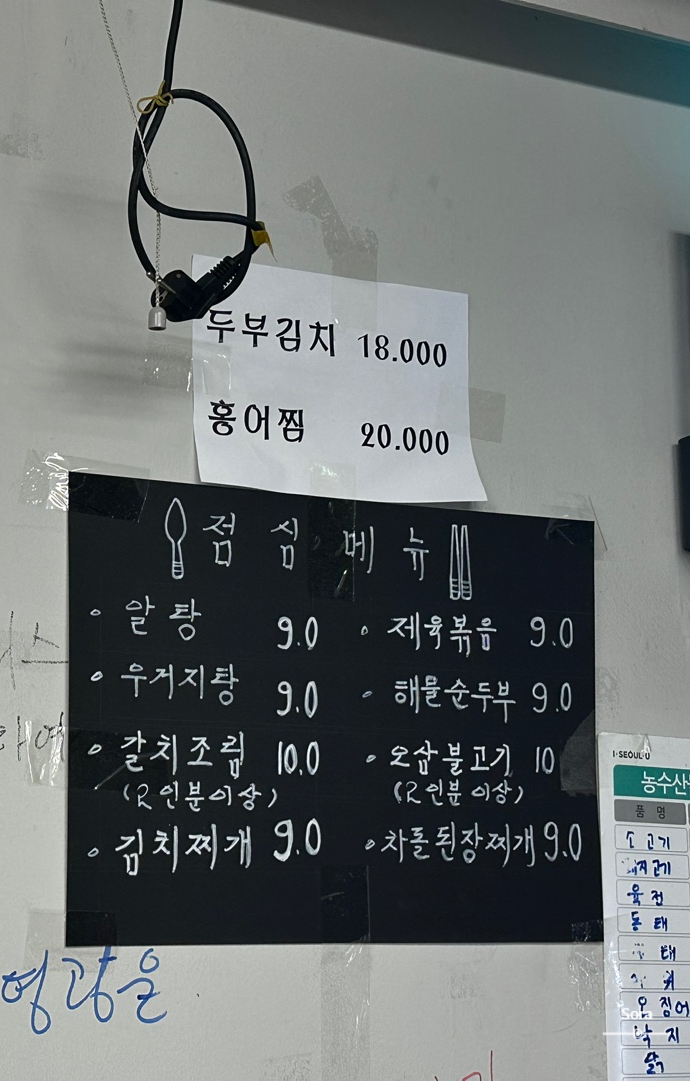 두부김치 18.000
홍어찜 20.000
점심 메뉴
알탕 9.0
제육볶음 9.0
우거지탕 9.0
해물순두부 9.0
갈치조림 10.0
(2인분이상)
오삼불고기 10
(2인분이상)
김치찌개 9.0
차돌된장찌개 9.0
영광은
I·SEOUL·U
농수산
품 명
소고기
돼지고기
육전
동태
오징어
낙지
닭
Sora